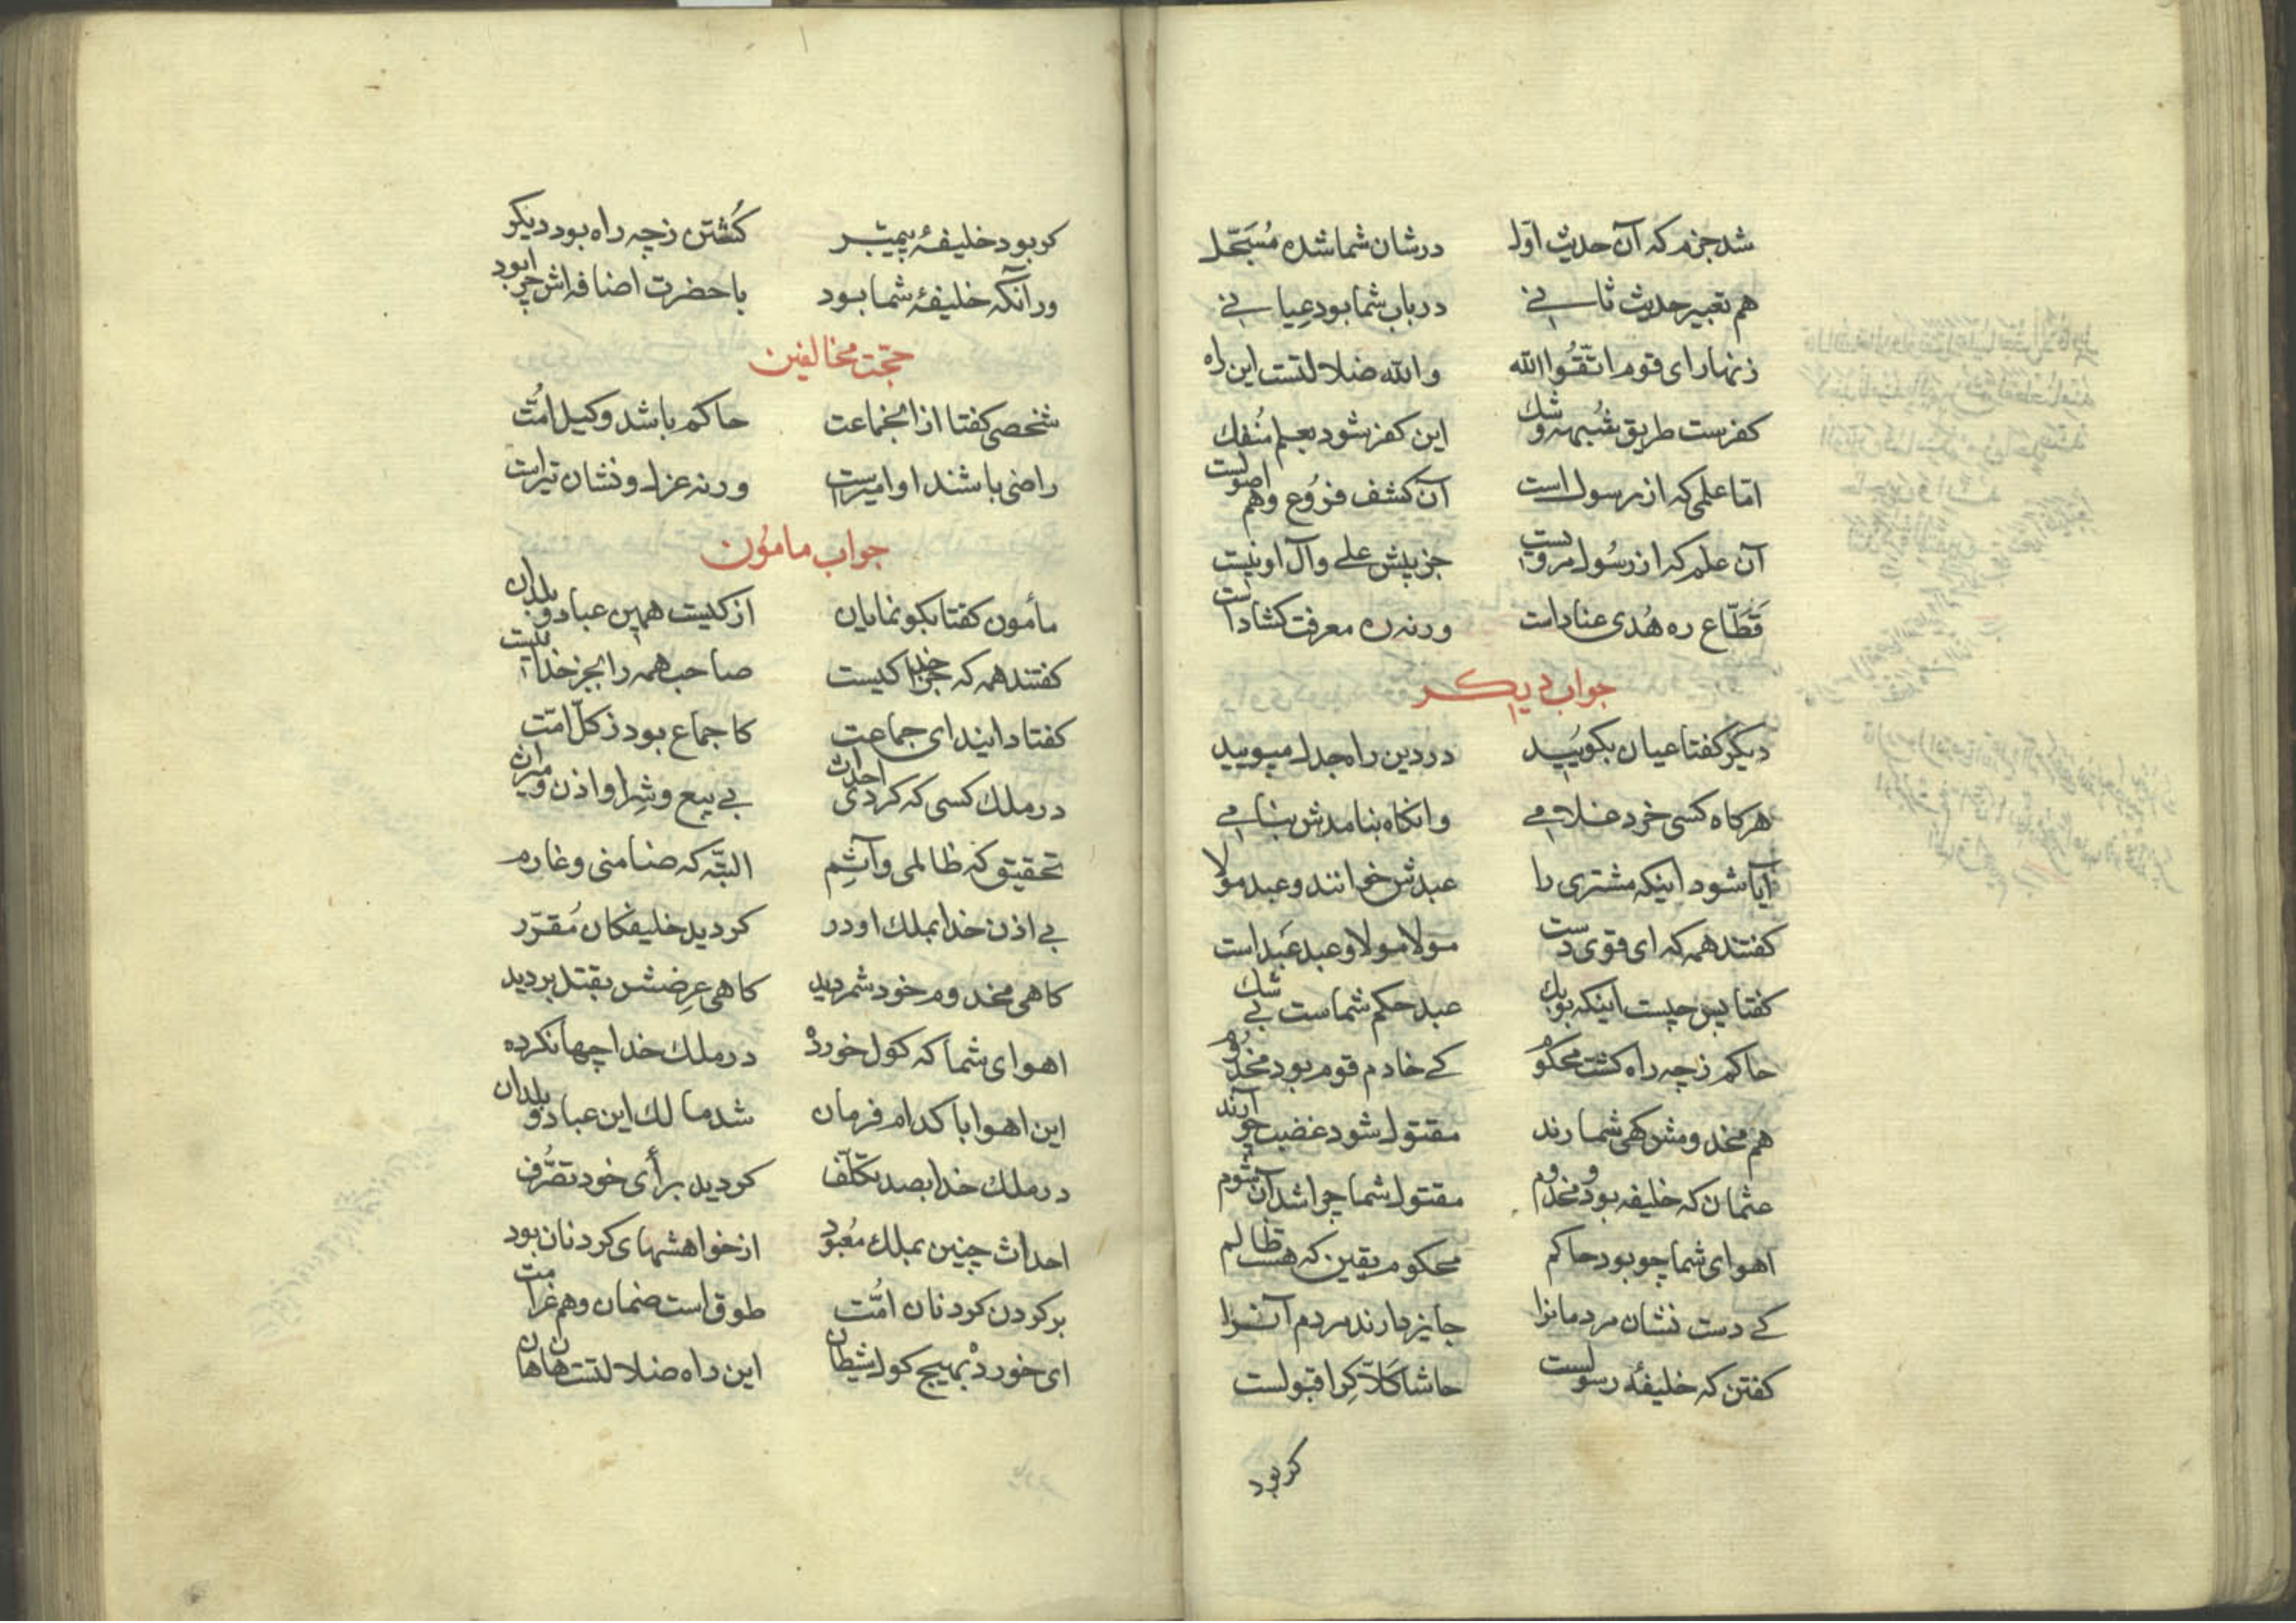 شد جزم که آن حدیث اوّل در شان شما شده مُسَجّل
هم تعبیر حدیث ثانی در باب شما بود عیانی
زنهار ای قوم اتّقُوا الله والله ضلالتست این راه
کفرست طریق شُبهه و شک این کفر شود بعلم مُنفک
امّا علمی که از رسول است آن کشف فرُوع و هم اصولست
آن علم که از رسُول مرویست جز پیش علی و آل او نیست
قَطّاع ره هُدی عنادست ورنه ره معرفت کشادست
جواب دیکر
دیکر کفتا عیان بکویُید در دین راه جدل مپویید
هرکاه کسی خرد غلامی وانکاه بنامدش بنامی
آیا شود اینکه مشتری را عبدش خوانند و عبد مولا
کفتند همه که ای قوی دست مولا مولا و عبد عَبد است
کفتا پس چیست اینکه بوبک عبد حکم شماست بی شک
حاکم ز چه راه کشت محکوم کی خادم قوم بود مخدوم
هم مخدومش کهی شمارند مقتول شود غضب چو آرند
عثمان که خلیفه بود و مخدوم مقتول شما چرا شد آن شوم
اهوای شما چو بود حاکم محکوم یقین که هست ظالم
کی دست نشان مردمانرا جایز دارند مردم آنرا
کفتن که خلیفهٔ رسولست حاشا کَلّا کِرا قبولست
کر بود
کر بود خلیفهٔ پیمبّر کُشتن ز چه راه بود دیکر
ور آنکه خلیفهٔ شما بود با حضرت اضافه اش چرا بود
حجّت مخالفین
شخصی کفتا از انجماعت حاکم باشد وکیل امُّت
راضی باشند او امیرست ورنه عزل و نشان تیراست
جواب مامُون
مأمون کفتا بکو نمایان از کیست همین عباد و بلدان
کفتند همه که جز خدا کیست صاحب همه را بجز خدا نیست
کفتا دانید ای جماعت کاجماع بود ز کلّ امّت
در ملک کسی که کردی احداث بی بیع و شِرا و اذن و میراث
تحقیق که ظالمی و آثِم البتّه که ضامنی و غارم
بی اذن خدا بملک او در کردید خلیفکان مُقرّر
کاهی مخدوم خود شمردید کاهی عِرضش بقتل بردید
اهوای شما که کول خوردْ در ملک خدا چها نکرده
این اهوا با کدام فرمان شد مالک این عباد و بلدان
در ملک خدا بصد تکلّف کردید برأی خود تصُّرف
احداث چنین بملک مُعبُود از خواهشهای کردنان بود
بر کردن کردنان امُّت طوق است ضمان و هم غرامت
ای خوردْ بهیچ کول شیطان این راه ضلالتست هان هان